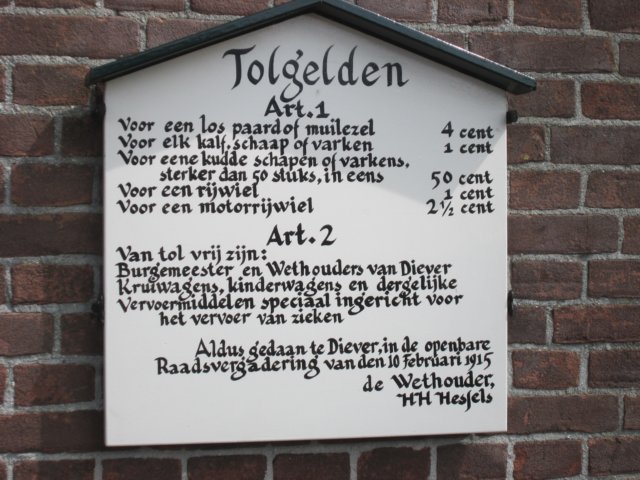 Tolgelden
Art. 1
Voor een los paard of muilezel 4 cent
Voor elk kalf, schaap of varken 1 cent
Voor eene kudde schapen of varkens,
sterker dan 50 stuks, in eens 50 cent
Voor een rijwiel 1 cent
Voor een motorrijwiel 2½ cent
Art. 2
Van tol vrij zijn:
Burgemeester en Wethouders van Diever
Kruiwagens, kinderwagens en dergelijke
Vervoermiddelen speciaal ingericht voor
het vervoer van zieken
Aldus gedaan te Diever, in de openbare
Raadsvergadering van den 10 Februari 1915
de Wethouder,
HH Hessels